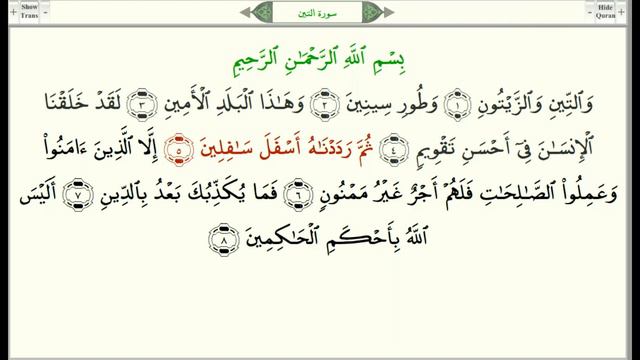 + Show Trans - سورة التين - Hide Quran +
بِسْمِ ٱللَّهِ ٱلرَّحْمَـٰنِ ٱلرَّحِيمِ
وَٱلتِّينِ وَٱلزَّيْتُونِ ۝١ وَطُورِ سِينِينَ ۝٢ وَهَـٰذَا ٱلْبَلَدِ ٱلْأَمِينِ ۝٣ لَقَدْ خَلَقْنَا
ٱلْإِنسَـٰنَ فِىٓ أَحْسَنِ تَقْوِيمٍ ۝٤ ثُمَّ رَدَدْنَـٰهُ أَسْفَلَ سَـٰفِلِينَ ۝٥ إِلَّا ٱلَّذِينَ ءَامَنُوا۟
وَعَمِلُوا۟ ٱلصَّـٰلِحَـٰتِ فَلَهُمْ أَجْرٌ غَيْرُ مَمْنُونٍ ۝٦ فَمَا يُكَذِّبُكَ بَعْدُ بِٱلدِّينِ ۝٧ أَلَيْسَ
ٱللَّهُ بِأَحْكَمِ ٱلْحَـٰكِمِينَ ۝٨